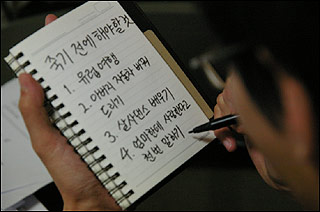 죽기 전에 해야할 것
1. 유럽 여행
2. 아버지 자동차 바꿔
드리기
3. 살사댄스 배우기
4. 엄마한테 사랑한다고
천번 말하기